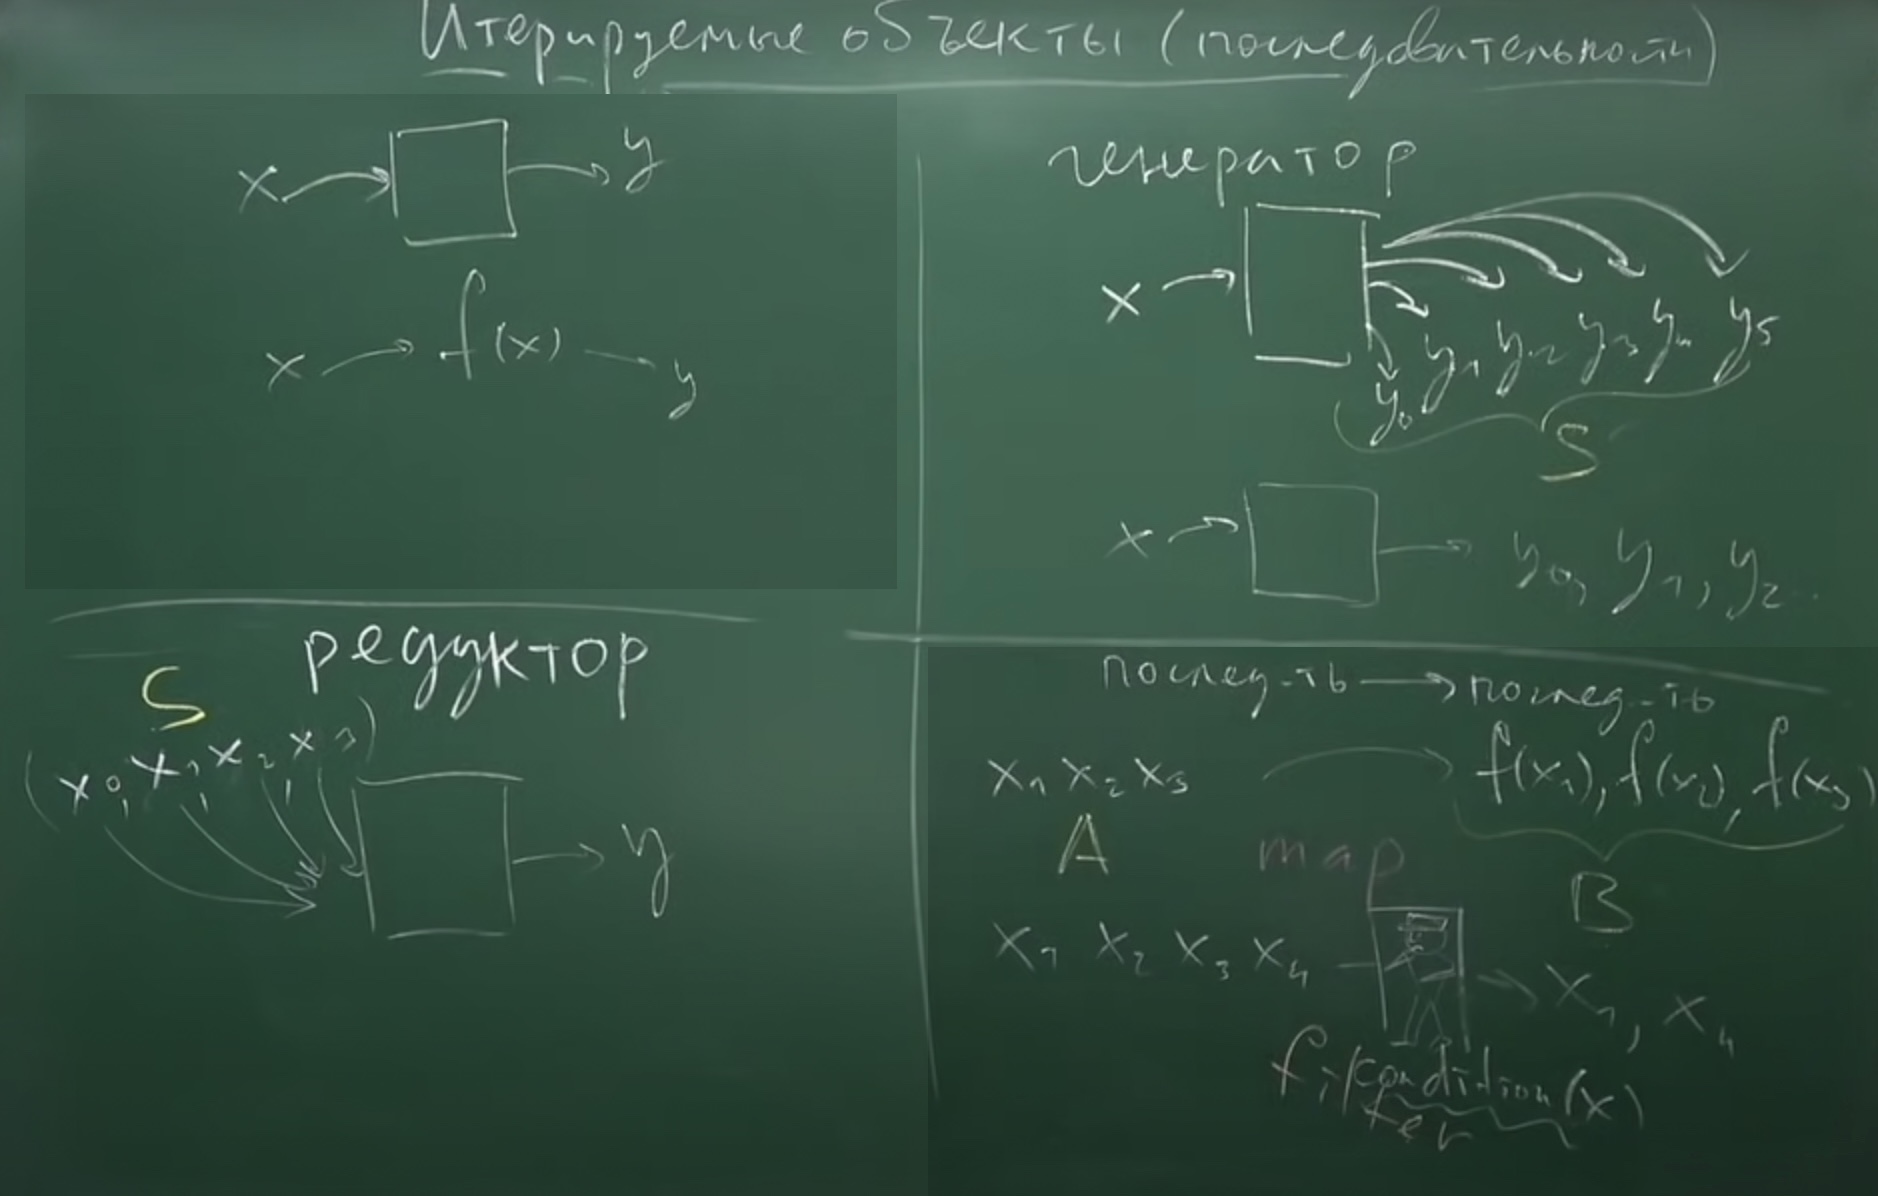 Итерируемые объекты (последовательности)
x → y
x → f(x) → y
генератор
x →
y₀ y₁ y₂ y₃ y₄ y₅
S
x → y₀, y₁, y₂ ..
редуктор
S
(x₀, x₁, x₂, x₃)
→ y
послед-ть → послед-ть
x₁ x₂ x₃ → f(x₁), f(x₂), f(x₃)
A map B
x₁ x₂ x₃ x₄ → x₁, x₄
filter
condition(x)